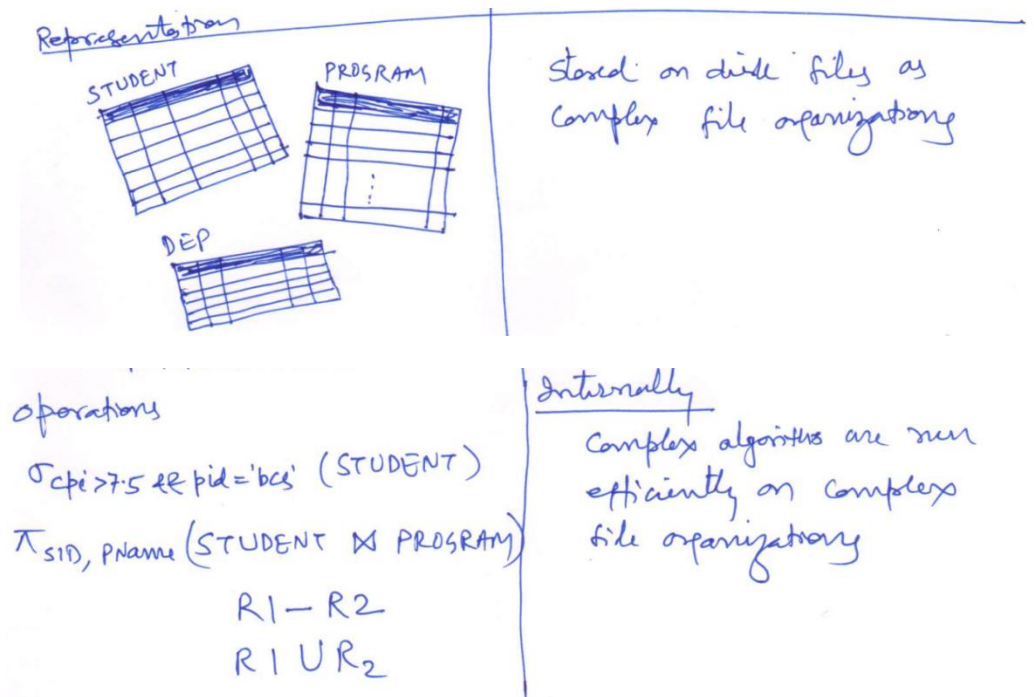 Representation
STUDENT
PROGRAM
DEP
Stored on disk files as
Complex file organizations
operations
σ cpi >7.5 && pid='bcs' (STUDENT)
π SID, PName (STUDENT ⋈ PROGRAM)
R1 — R2
R1 ∪ R2
Internally
Complex algoriths are run
efficiently on complex
file organizations